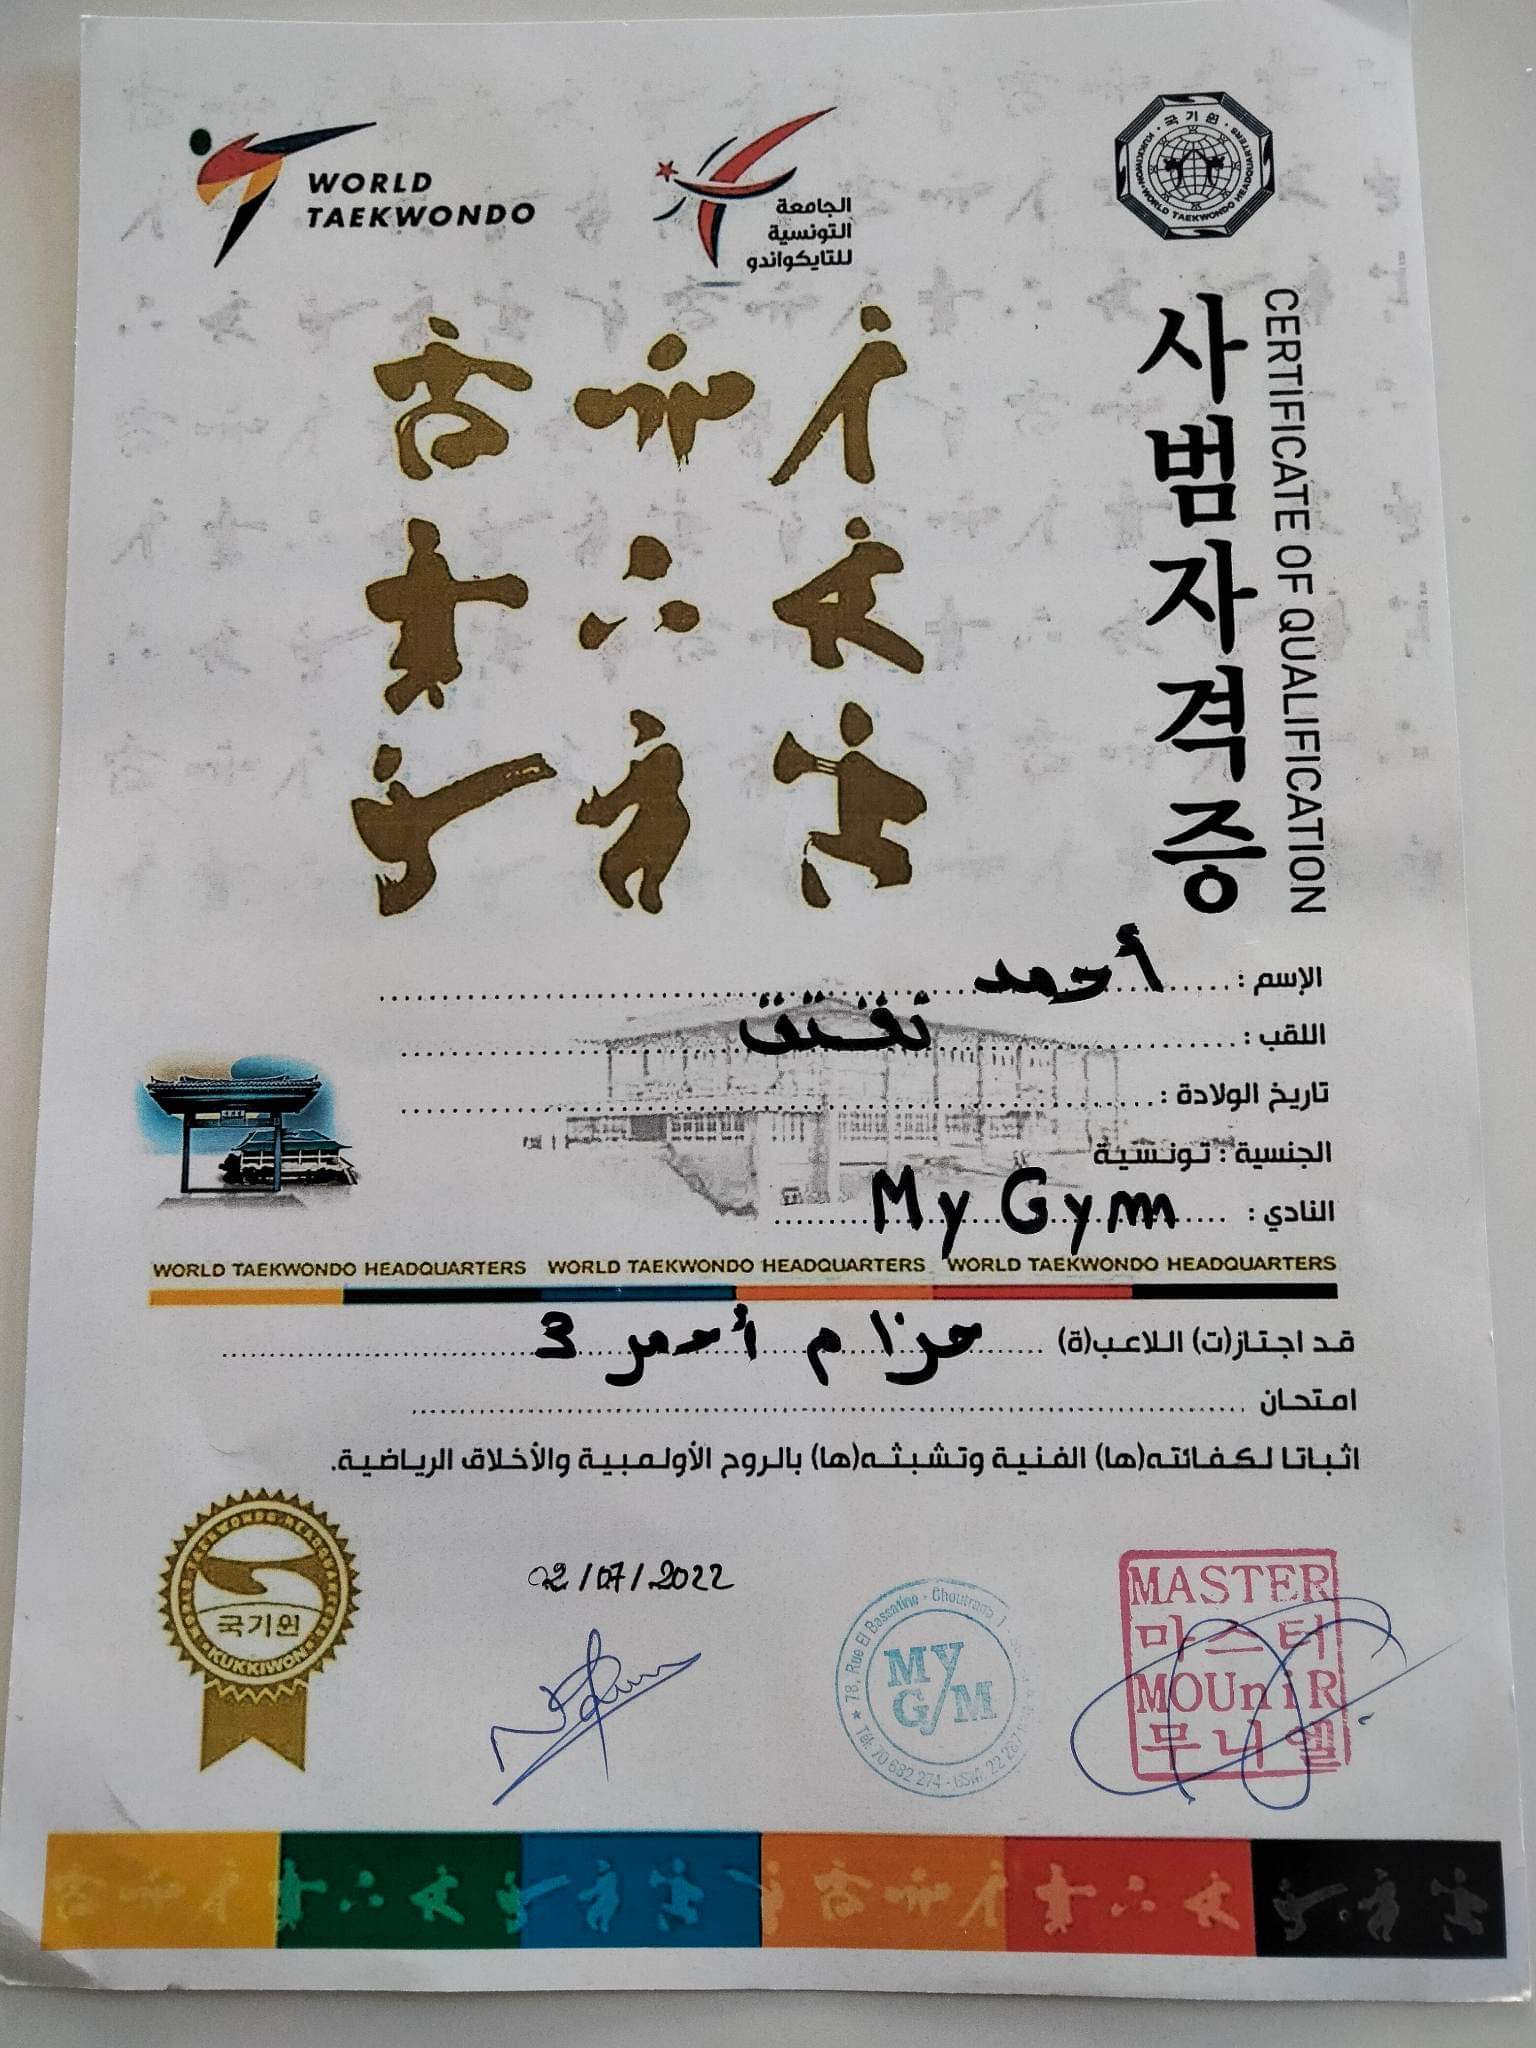 WORLD
TAEKWONDO
الجامعة
التونسية
للتايكواندو
· 국기원 ·
KUKKIWON · WORLD TAEKWONDO HEADQUARTERS
사범자격증
CERTIFICATE OF QUALIFICATION
الإسم : أحمد
اللقب :
تاريخ الولادة :
الجنسية : تونسية
النادي : My Gym
WORLD TAEKWONDO HEADQUARTERS WORLD TAEKWONDO HEADQUARTERS WORLD TAEKWONDO HEADQUARTERS
قد اجتاز(ت) اللاعب(ة) حزام أحمر 3
امتحان
اثباتا لكفائته(ها) الفنية وتشبثه(ها) بالروح الأولمبية والأخلاق الرياضية.
WORLD TAEKWONDO HEADQUARTERS
국기원
KUKKIWON
02/07/2022
★ 78, Rue El Bassatine - Choutrana 1
MY
GYM
Tél: 70 682 274 - GSM: 22 287
MASTER
마스터
MOUniR
무니엘